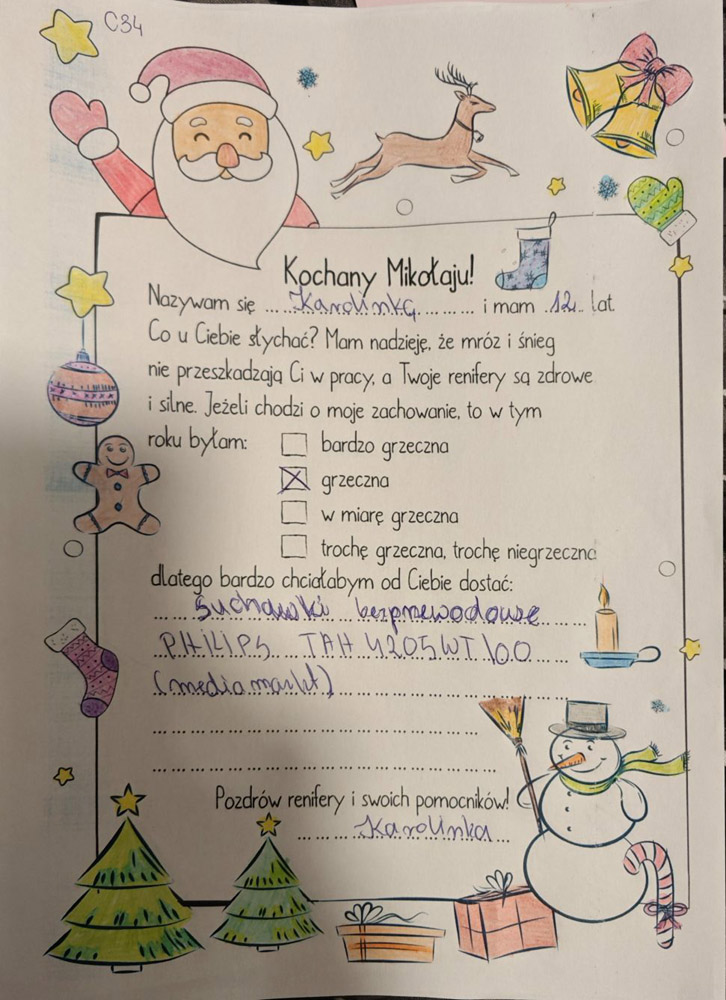 C34
Kochany Mikołaju!
Nazywam się ... Karolinka ... i mam 12 lat.
Co u Ciebie słychać? Mam nadzieję, że mróz i śnieg
nie przeszkadzają Ci w pracy, a Twoje renifery są zdrowe
i silne. Jeżeli chodzi o moje zachowanie, to w tym
roku byłam:
bardzo grzeczna
grzeczna
w miarę grzeczna
trochę grzeczna, trochę niegrzeczna
dlatego bardzo chciałabym od Ciebie dostać:
Suchawki bezprzewodowe
PHILIPS TAH 4205WT/00
(media markt)
Pozdrów renifery i swoich pomocników!
Karolinka